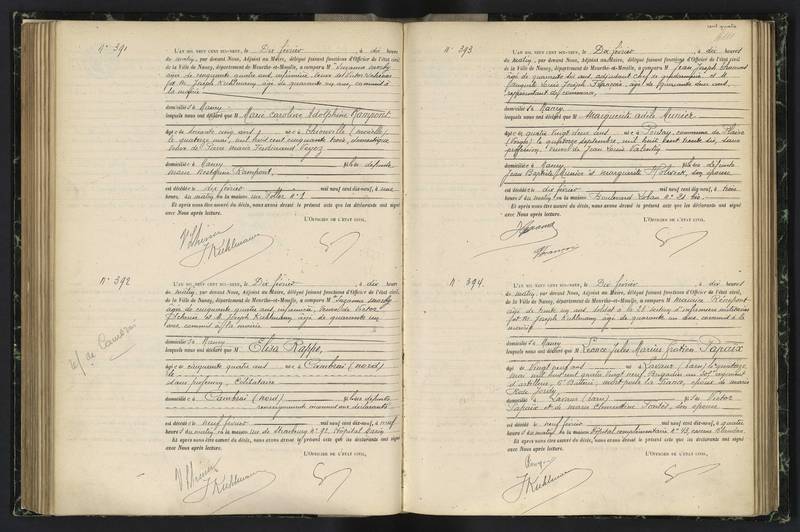 N° 391
L'AN MIL NEUF CENT DIX-NEUF, le Dix février, à dix heures
du matin, par devant Nous, Adjoint au Maire, délégué faisant fonctions d'Officier de l'état civil,
de la Ville de Nancy, département de Meurthe-et-Moselle, a comparu M
âgée de cinquante quatre ans, infirmière, veuve de Victor
et M. Joseph Kuhlmann, âgé de quarante un ans, commis à
la mairie
domiciliés à Nancy
lesquels nous ont déclaré que Marie Caroline Adolphine Rampont
âgée de soixante cinq ans, née à Thionville (Moselle)
le quatorze mai, mil huit cent cinquante trois, domestique
veuve de Pierre Marie Ferdinand
domiciliée à Nancy, fille de défunte
Marie Joséphine Rampont,
est décédée le dix février mil neuf cent dix-neuf, à une
heure du matin en la maison rue N° 1
Et après nous être assuré du décès, nous avons dressé le présent acte que les déclarants ont signé
avec Nous après lecture.
L'OFFICIER DE L'ÉTAT CIVIL,
J Kuhlmann
N° 392
L'AN MIL NEUF CENT DIX-NEUF, le Dix février, à dix heures
du matin, par devant Nous, Adjoint au Maire, délégué faisant fonctions d'Officier de l'état civil,
de la Ville de Nancy, département de Meurthe-et-Moselle, a comparu M
âgée de cinquante quatre ans, infirmière, veuve de Victor
et M. Joseph Kuhlmann, âgé de quarante un
ans, commis à la mairie
domiciliés à Nancy
lesquels nous ont déclaré que Elisa Rappe,
âgée de cinquante quatre ans, née à Cambrai (Nord)
le
sans profession, célibataire
domiciliée à Cambrai (Nord), fille de
renseignements inconnus aux déclarants
est décédée le neuf février mil neuf cent dix-neuf, à neuf
heures du matin en la maison rue de Strasbourg N° 92, Hôpital
Et après nous être assuré du décès, nous avons dressé le présent acte que les déclarants ont signé
avec Nous après lecture.
L'OFFICIER DE L'ÉTAT CIVIL,
J Kuhlmann
de Cambrai
cent quatre
N° 393
L'AN MIL NEUF CENT DIX-NEUF, le Dix février, à dix heures
du matin, par devant Nous, Adjoint au Maire, délégué faisant fonctions d'Officier de l'état civil,
de la Ville de Nancy, département de Meurthe-et-Moselle, a comparu M Jean Joseph
âgé de quarante six ans, adjudant chef de gendarmerie et M.
Auguste Louis Joseph François, âgé de quarante deux ans,
représentant de commerce,
domiciliés à Nancy
lesquels nous ont déclaré que Marguerite Adèle Munier
âgée de quatre vingt deux ans, née à Poussay, commune de
(Vosges) le quatorze septembre, mil huit cent trente six, sans
profession, veuve de Jean Louis Valentin
domiciliée à Nancy, fille de défunts
Jean Baptiste Munier et Marguerite son épouse
est décédée le dix février mil neuf cent dix-neuf, à trois
heures du matin en la maison Boulevard Lobau N° 21 bis
Et après nous être assuré du décès, nous avons dressé le présent acte que les déclarants ont signé
avec Nous après lecture.
L'OFFICIER DE L'ÉTAT CIVIL,
François
N° 394
L'AN MIL NEUF CENT DIX-NEUF, le Dix février, à dix heures
du matin, par devant Nous, Adjoint au Maire, délégué faisant fonctions d'Officier de l'état civil,
de la Ville de Nancy, département de Meurthe-et-Moselle, a comparu M Maurice
âgé de trente un ans, soldat à la 23e section d'infirmiers militaires
et M. Joseph Kuhlmann, âgé de quarante un ans, commis à la
mairie
domiciliés à Nancy
lesquels nous ont déclaré que Léonce Jules Marius Gratien Papaix
âgé de vingt neuf ans, né à Lavaur (Tarn) le
mai mil huit cent quatre vingt neuf, Brigadier au régiment
d'artillerie, 6e Batterie, mort pour la France, époux de Marie
Rose
domicilié à Lavaur (Tarn), fils de Victor
Papaix et de Marie Clémentine son épouse
est décédé le neuf février mil neuf cent dix-neuf, à quatre
heures du en la maison Hôpital complémentaire N° 43, caserne Blandan
Et après nous être assuré du décès, nous avons dressé le présent acte que les déclarants ont signé
avec Nous après lecture.
L'OFFICIER DE L'ÉTAT CIVIL,
J Kuhlmann